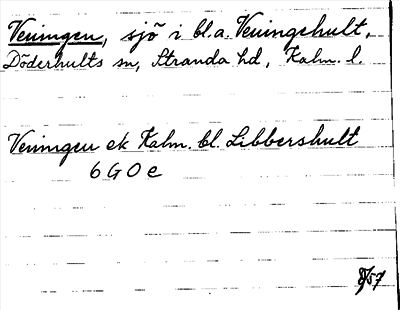 Veningen, sjö i bl.a. Veningehult,
Döderhults sn, Stranda hd, Kalm. l.
Veningen ek Kalm. bl. Libbershult
6 G 0 e